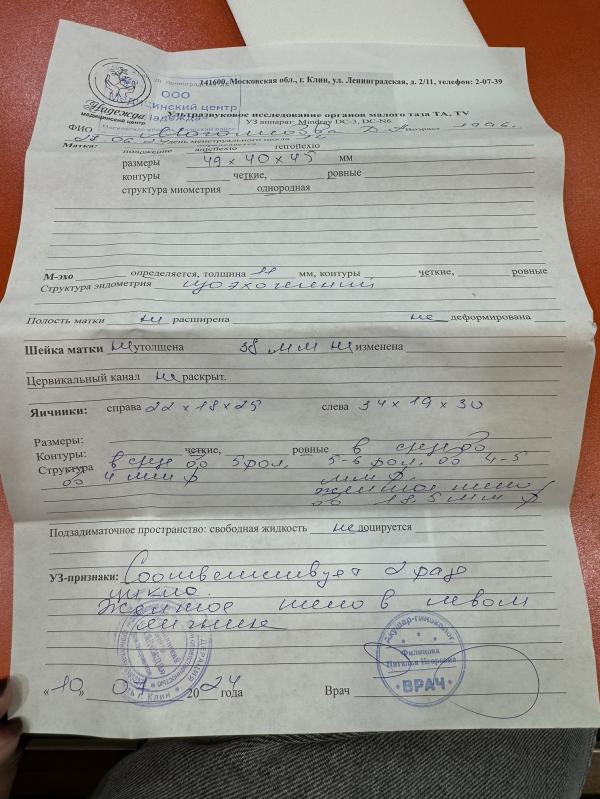 141600, Московская обл., г. Клин, ул. Ленинградская, д. 2/11, телефон: 2-07-39
ООО
Надежда
медицинский центр
Ультразвуковое исследование органов малого таза ТА, TV
УЗ аппарат: Mindray DC-3, DC-N6
ФИО Возраст 1996.
день менструального цикла
Матка:
положение anteflexio retroflexio
размеры 49 х 40 х 45 мм
контуры четкие, ровные
структура миометрия однородная
М-эхо определяется, толщина 11 мм, контуры четкие, ровные
Структура эндометрия изоэхогенный
Полость матки не расширена не деформирована
Шейка матки не утолщена 38 мм не изменена
Цервикальный канал не раскрыт.
Яичники: справа 22 х 18 х 25 слева 34 х 19 х 30
Размеры:
Контуры: четкие, ровные
Структура в срезе до 5 фол. в срезе до
до 4 мм ф 5-6 фол. до 4-5
мм ф.
желтое тело
до 18,5 мм ф
Подзадиматочное пространство: свободная жидкость не лоцируется
УЗ-признаки: Соответствует 2 фазе
цикла.
Желтое тело в левом
яичнике
Акушер-гинеколог
Филинова
Наталья Игоревна
ВРАЧ
«10» 07 2024 года Врач